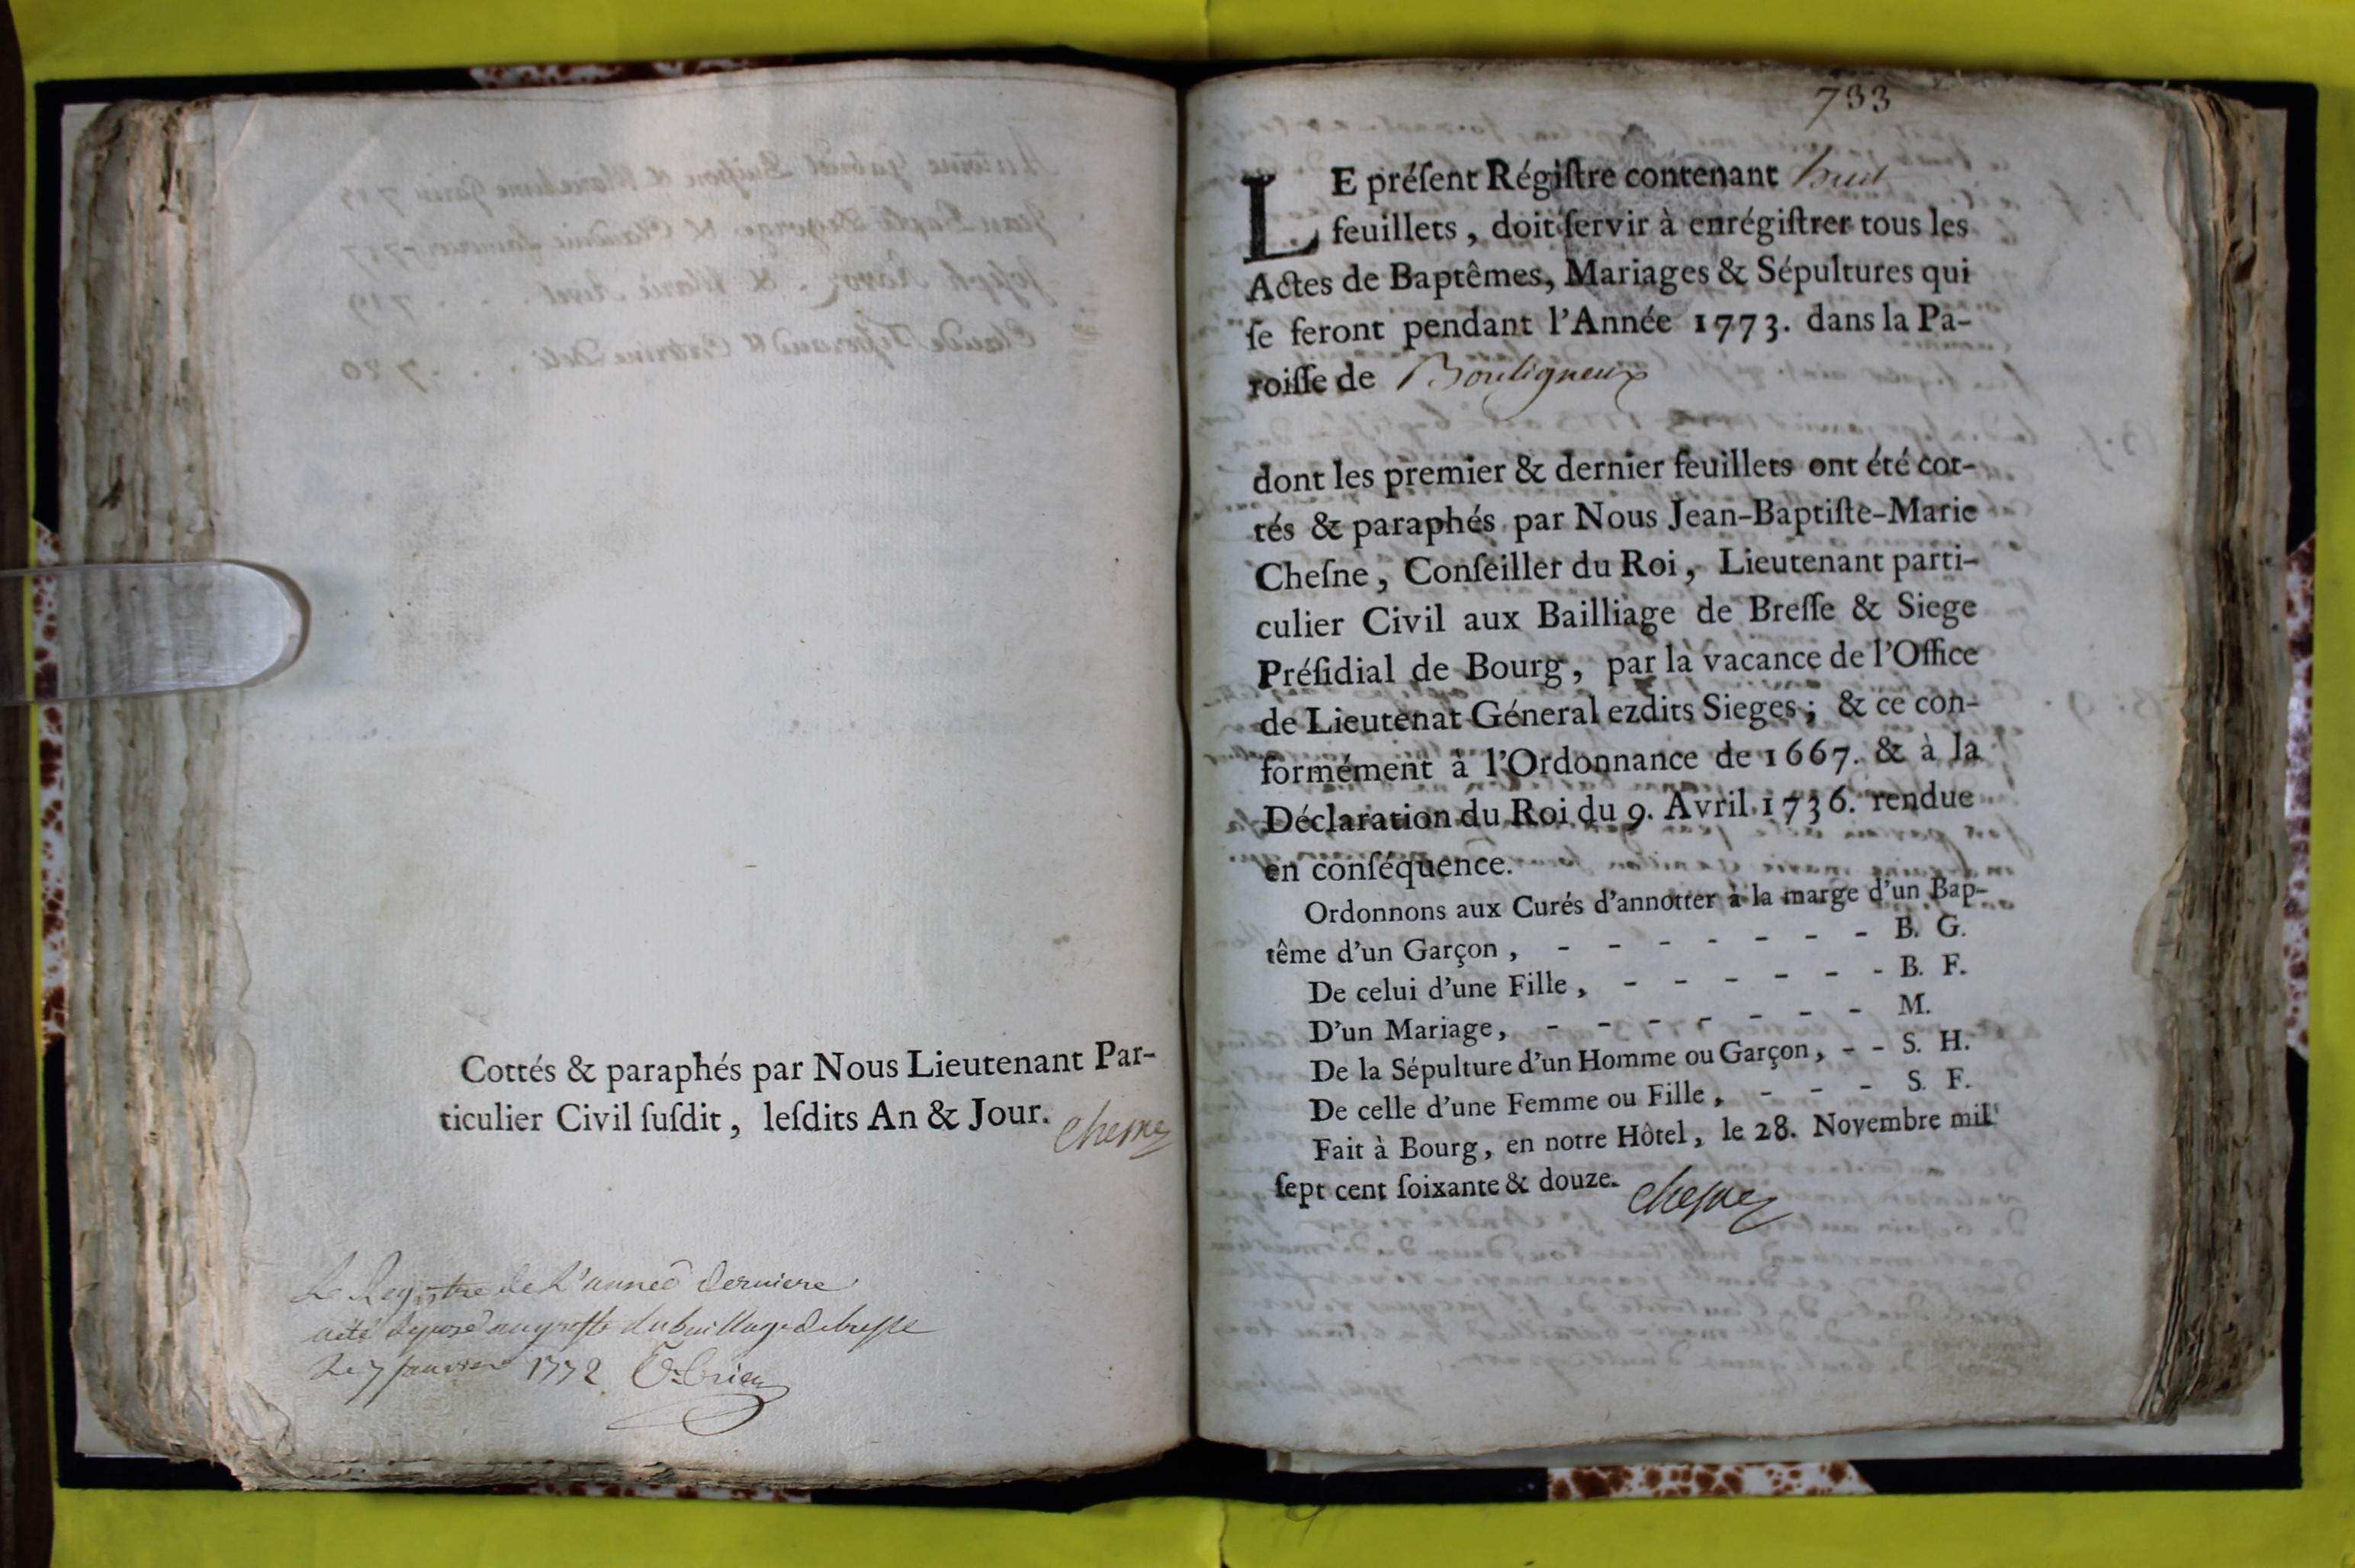 Cottés & paraphés par Nous Lieutenant Par-
ticulier Civil ſuſdit, leſdits An & Jour.
Chesne
Le Registre de L'année derniere
a été déposé au greffe du baillage de bresse
Le 7 janvier 1772
733
LE préſent Régiſtre contenant huit
feuillets, doit ſervir à enrégiſtrer tous les
Actes de Baptêmes, Mariages & Sépultures qui
ſe feront pendant l'Année 1773. dans la Pa-
roiſſe de Bouligneux
dont les premier & dernier feuillets ont été cot-
tés & paraphés par Nous Jean-Baptiſte-Marie
Cheſne, Conſeiller du Roi, Lieutenant parti-
culier Civil aux Bailliage de Breſſe & Siege
Préſidial de Bourg, par la vacance de l'Office
de Lieutenat Géneral ezdits Sieges; & ce con-
formément à l'Ordonnance de 1667. & à la
Déclaration du Roi du 9. Avril 1736. rendue
en conſéquence.
Ordonnons aux Curés d'annotter à la marge d'un Bap-
tême d'un Garçon, - - - - - - - B. G.
De celui d'une Fille, - - - - - - B. F.
D'un Mariage, - - - - - - - M.
De la Sépulture d'un Homme ou Garçon, - - S. H.
De celle d'une Femme ou Fille, - - - S. F.
Fait à Bourg, en notre Hôtel, le 28. Novembre mil
ſept cent ſoixante & douze.
Chesne